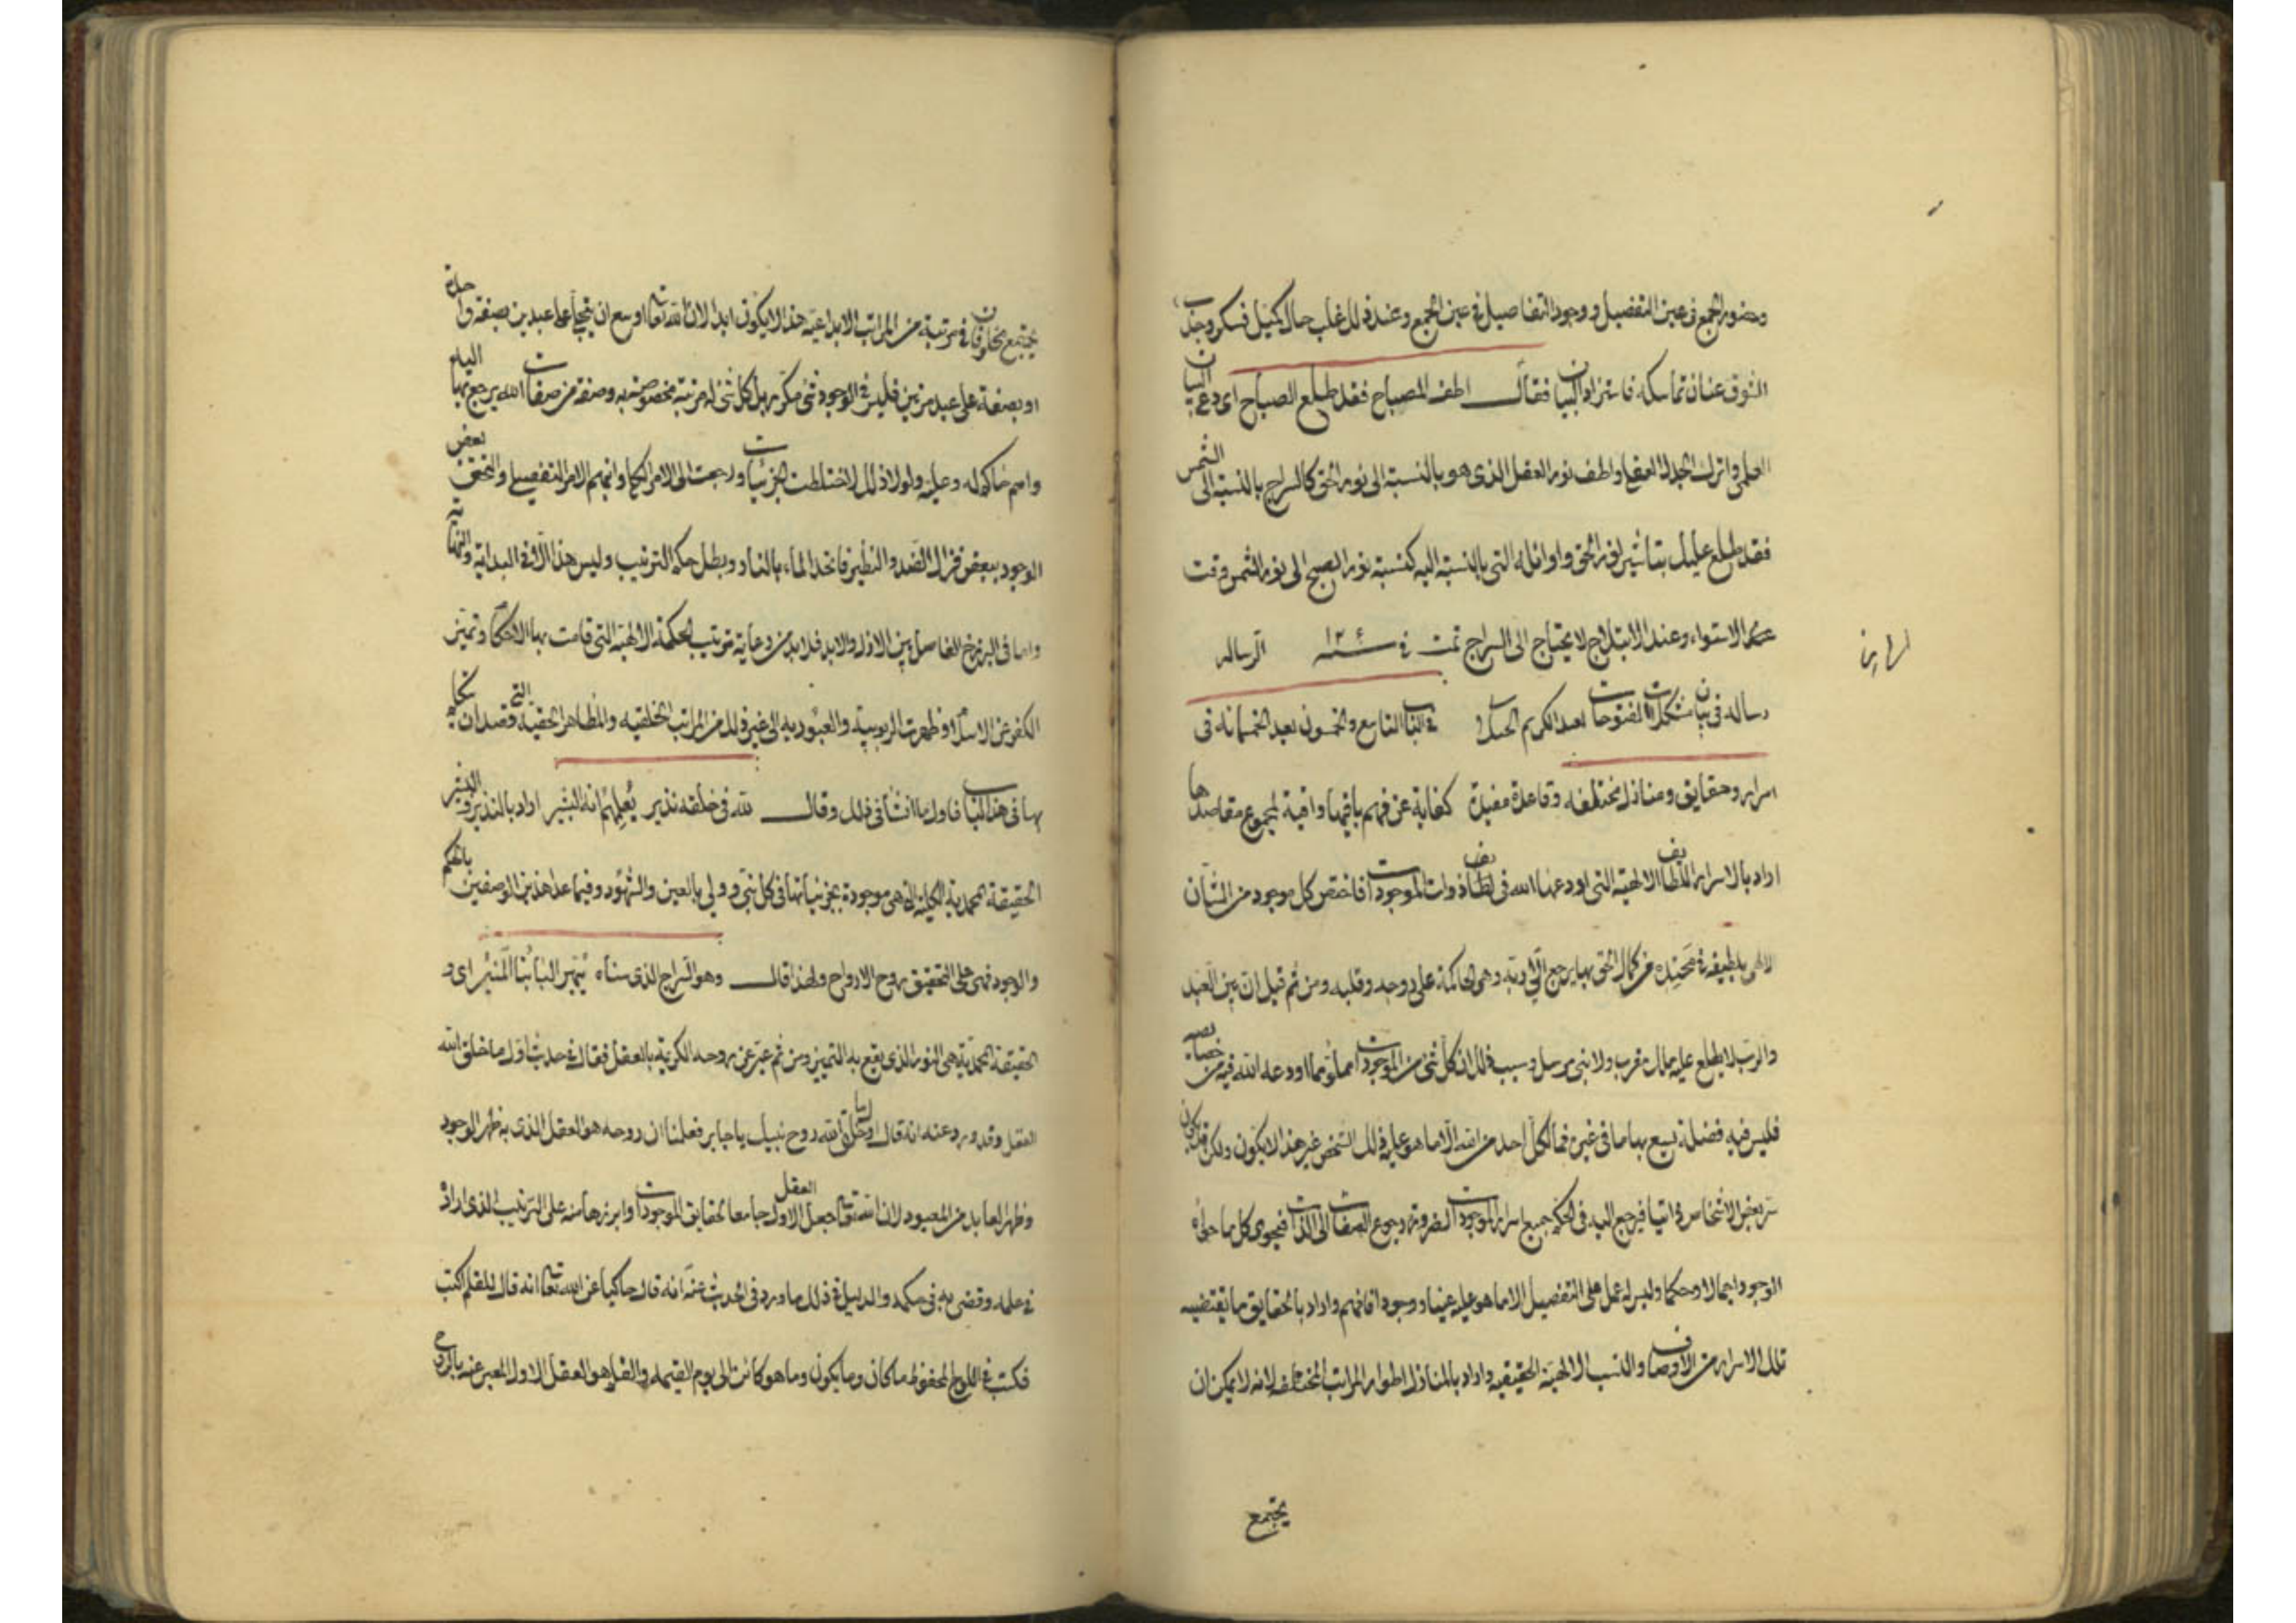 وحضور الجمع فى عين التفصيل ووجود التفاصيل فى عين الجمع وعند ذلك غلب حال كميل فسكر وجذب
الشوق عنان تماسكه فاستزاد البيان فقال اطف المصباح فقد طلع الصباح اى دع البيان
العلمى واترك الجدل العقلى واطف نور العقل الذى هو بالنسبة الى نور الحق كالسراج بالنسبة الى الشمس
فقد طلع عليك بتاثير نور الحق واوائله التى بالنسبة اليه كنسبة نور الصبح الى نور الشمس وقت
الاستواء وعند الابتلاج لا يحتاج الى السراج تمت الرساله فى سنه
رساله فى بيان مشكلات الفتوحات لعبد الكريم فى الباب التاسع والخمسون بعد الخمسمائه فى
اسرار وحقايق ومنازل مختلفه وقاعدة مفيدة كفاية عن فهم باقيها وافية لمجموع مقاصدها
اراد بالاسرار اللطايف الالهية التى اودعها الله فى لطايف ذوات الموجودات فاختص كل موجود من الشان
الالهى بلطيفة من كمال الحق بها يرجع الى ربه وهى الحاكمة على روحه وقلبه ومن ثم قيل ان بين العبد
والرب لا يطلع عليه ملك مقرب ولا نبى مرسل وسبب ذلك ان كل شئ من الموجودات مملو بما اودعه الله فيه من خصايصه
فليس فيه فضلة يسع بها ما فى غيره فما لكل احد من الله الا ما هو عليه ذلك الشخص غير هذا لا يكون ولكن قد يكون
سر بعض الاشخاص ذاتيا فيرجع اليه فى الحكم جميع اسرار الموجودات لضرورة رجوع الصفات الى الذات فيحوى كل ما حواه
الوجود اجمالا وحكما وليس له عمل على التفصيل الا ما هو عليه عينا ووجودا فافهم واراد بالحقايق ما يقتضيه
تلك الاسرار من الاوصاف والنسب الالهية الحقيقيه واراد بالمنازل اطوار المراتب المختلفه لانه لا يمكن ان
يجتمع
يجتمع مخلوقان فى مرتبة من المراتب الابداعيه هذا لا يكون ابدا لان الله تعالى اوسع ان يتجلى على عبدين بصفة واحدة
او بصفة على عبد مرتين فليس فى الوجود شئ مكرر بل كل شئ له مرتبة مخصوصة به وصفة من صفات الله يرجع بها اليه
واسم حاكم له وعليه ولولا ذلك لاختلطت الجزئيات ورجعت الى الامر الحكمى وانبهم الامر التفصيلى والتحقق بعض
الوجود ببعض فزال الضد والنظير فاتحد الماء بالنار وبطل حكم الترتيب وليس هذا الا فى البداية والنهاية
واما فى البرزخ الفاصل بين الازل والابد فلا بد من رعاية ترتيب الحكمة الالهية التى قامت بها الاحكام وتميز
الكفر عن الاسلام وظهرت الربوبية والعبودية الى غير ذلك من المراتب الخلقيه والمظاهر الحقيه التى قصد ان يتكلم
بها فى هذا الباب فاول ما انشا فى ذلك وقال لله فى خلقه نذير يعلمهم انه البشير اراد بالنذير والبشير
الحقيقة المحمدية الكلية التى هى موجودة بجزئياتها فى كل نبى وولى بالعين والشهود وفيما عدا هذين الوصفين بالحكم
والوجود فهى على التحقيق روح الارواح ولهذا قال وهو السراج الذى سناه يبهر البابنا المنير اى و
الحقيقة المحمدية هى النور الذى يقع به التمييز ومن ثم عبر عن روحه الكريمة بالعقل فقال فى حديث اول ما خلق الله
العقل وقد ورد عنه انه قال اول ما خلق الله روح نبيك يا جابر فعلمنا ان روحه هو العقل الذى به ظهر الوجود
وظهر العابد من المعبود لان الله تعالى جعل العقل الاول جامعا لحقايق الموجودات وابرزها منه على الترتيب الذى اراد
فى علمه وقضى به فى حكمه والدليل فى ذلك ما ورد فى الحديث عنه انه قال حاكيا عن الله تعالى انه قال للقلم اكتب
فكتب فى اللوح المحفوظ ما كان وما يكون وما هو كائن الى يوم القيمه والقلم هو العقل الاول المعبر عنه بالروح